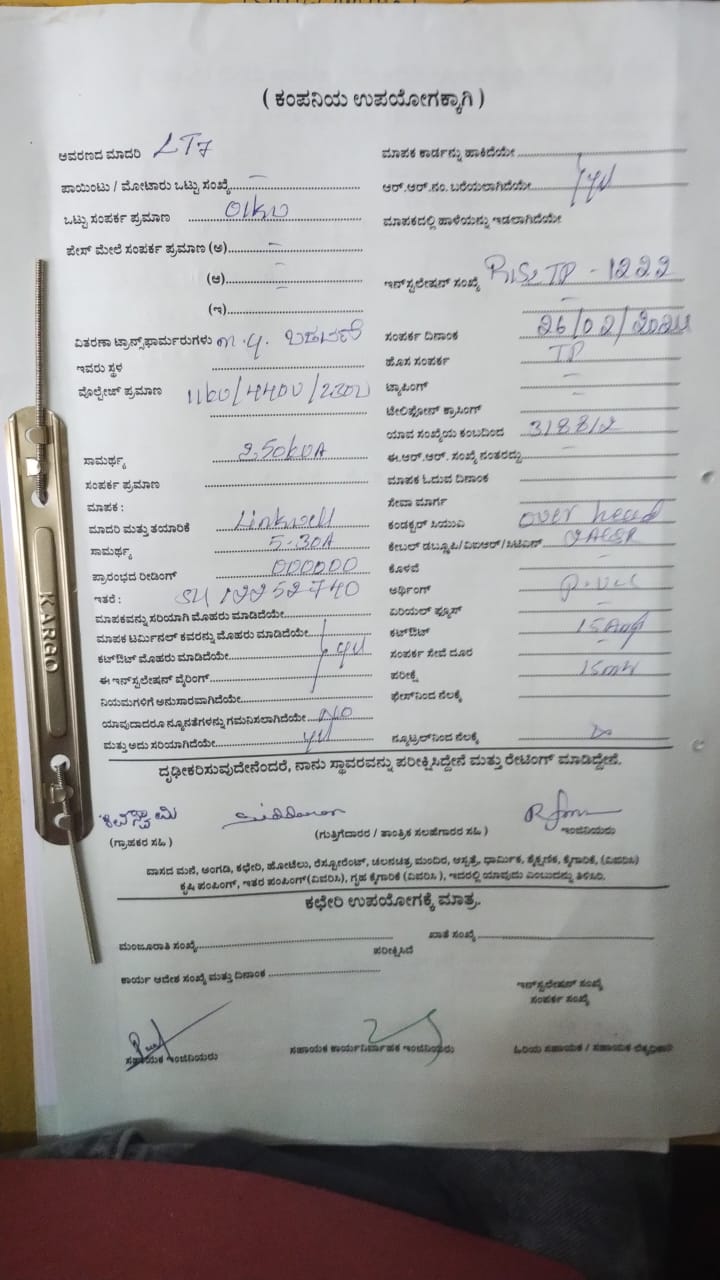 ( ಕಂಪನಿಯ ಉಪಯೋಗಕ್ಕಾಗಿ )
ಆವರಣದ ಮಾದರಿ LT7
ಮಾಪಕ ಕಾರ್ಡನ್ನು ಹಾಕಿದೆಯೇ
ಪಾಯಿಂಟು / ಮೋಟಾರು ಒಟ್ಟು ಸಂಖ್ಯೆ
ಆರ್.ಆರ್.ನಂ. ಬರೆಯಲಾಗಿದೆಯೇ
ಒಟ್ಟು ಸಂಪರ್ಕ ಪ್ರಮಾಣ 01KW
ಮಾಪಕದಲ್ಲಿ ಹಾಳೆಯನ್ನು ಇಡಲಾಗಿದೆಯೇ
ಫೇಸ್ ಮೇಲೆ ಸಂಪರ್ಕ ಪ್ರಮಾಣ (ಅ)
(ಆ)
ಇನ್‌ಸ್ಟಲೇಷನ್ ಸಂಖ್ಯೆ TP - 1222
(ಇ)
ವಿತರಣಾ ಟ್ರಾನ್ಸ್‌ಫಾರ್ಮರುಗಳು
ಸಂಪರ್ಕ ದಿನಾಂಕ 26/02/2024
ಇವರು ಸ್ಥಳ
ಹೊಸ ಸಂಪರ್ಕ TP
ವೋಲ್ಟೇಜ್ ಪ್ರಮಾಣ
ಟ್ಯಾಪಿಂಗ್
ಟೆಲಿಫೋನ್ ಕ್ರಾಸಿಂಗ್
ಯಾವ ಸಂಖ್ಯೆಯ ಕಂಬದಿಂದ
ಸಾಮರ್ಥ್ಯ 250KVA
ಈ.ಆರ್.ಆರ್. ಸಂಖ್ಯೆ ನಂತರದ್ದು
ಸಂಪರ್ಕ ಪ್ರಮಾಣ
ಮಾಪಕ ಓದುವ ದಿನಾಂಕ
ಮಾಪಕ :
ಸೇವಾ ಮಾರ್ಗ
ಮಾದರಿ ಮತ್ತು ತಯಾರಿಕೆ Linkwell
ಕಂಡಕ್ಟರ್ ಸಿಯುವಿ over head
ಸಾಮರ್ಥ್ಯ 5-30A
ಕೇಬಲ್ ಡಬ್ಲೂಪಿ/ವಿಐಆರ್/ಸಿಟಿಎಸ್
ಪ್ರಾರಂಭದ ರೀಡಿಂಗ್ 000000
ಕೊಳವೆ
ಇತರೆ : 12252740
ಅರ್ಥಿಂಗ್
ಮಾಪಕವನ್ನು ಸರಿಯಾಗಿ ಮೊಹರು ಮಾಡಿದೆಯೇ
ಏರಿಯಲ್ ಫ್ಯೂಸ್
ಮಾಪಕ ಟರ್ಮಿನಲ್ ಕವರನ್ನು ಮೊಹರು ಮಾಡಿದೆಯೇ
ಕಟ್‌ಔಟ್ 15Amp
ಕಟ್‌ಔಟ್ ಮೊಹರು ಮಾಡಿದೆಯೇ
ಸಂಪರ್ಕ ಸೇವೆ ದೂರ
ಈ ಇನ್‌ಸ್ಟಲೇಷನ್ ವೈರಿಂಗ್
ಪರೀಕ್ಷೆ
ನಿಯಮಗಳಿಗೆ ಅನುಸಾರವಾಗಿದೆಯೇ
ಫೇಸ್‌ನಿಂದ ನೆಲಕ್ಕೆ
ಯಾವುದಾದರೂ ನ್ಯೂನತೆಗಳನ್ನು ಗಮನಿಸಲಾಗಿದೆಯೇ NO
ಮತ್ತು ಅದು ಸರಿಯಾಗಿದೆಯೇ
ನ್ಯೂಟ್ರಲ್‌ನಿಂದ ನೆಲಕ್ಕೆ
ದೃಢೀಕರಿಸುವುದೇನೆಂದರೆ, ನಾನು ಸ್ಥಾವರವನ್ನು ಪರೀಕ್ಷಿಸಿದ್ದೇನೆ ಮತ್ತು ರೇಟಿಂಗ್ ಮಾಡಿದ್ದೇನೆ.
(ಗ್ರಾಹಕರ ಸಹಿ )
(ಗುತ್ತಿಗೆದಾರರ / ತಾಂತ್ರಿಕ ಸಲಹೆಗಾರರ ಸಹಿ )
ಇಂಜಿನಿಯರು
ವಾಸದ ಮನೆ, ಅಂಗಡಿ, ಕಛೇರಿ, ಹೋಟೆಲು, ರೆಸ್ಟೋರೆಂಟ್, ಚಲನಚಿತ್ರ ಮಂದಿರ, ಆಸ್ಪತ್ರೆ, ಧಾರ್ಮಿಕ, ಶೈಕ್ಷಣಿಕ, ಕೈಗಾರಿಕೆ, (ವಿವರಿಸಿ)
ಕೃಷಿ ಪಂಪಿಂಗ್, ಇತರ ಪಂಪಿಂಗ್(ವಿವರಿಸಿ), ಗೃಹ ಕೈಗಾರಿಕೆ (ವಿವರಿಸಿ ), ಇದರಲ್ಲಿ ಯಾವುದು ಎಂಬುದನ್ನು ತಿಳಿಸಿರಿ.
ಕಛೇರಿ ಉಪಯೋಗಕ್ಕೆ ಮಾತ್ರ.
ಮಂಜೂರಾತಿ ಸಂಖ್ಯೆ
ಖಾತೆ ಸಂಖ್ಯೆ
ಪರೀಕ್ಷಿಸಿದೆ
ಕಾರ್ಯ ಆದೇಶ ಸಂಖ್ಯೆ ಮತ್ತು ದಿನಾಂಕ
ಇನ್‌ಸ್ಟಲೇಷನ್ ಸಂಖ್ಯೆ
ಸಂಪರ್ಕ ಸಂಖ್ಯೆ
ಸಹಾಯಕ ಇಂಜಿನಿಯರು
ಸಹಾಯಕ ಕಾರ್ಯನಿರ್ವಾಹಕ ಇಂಜಿನಿಯರು
ಹಿರಿಯ ಸಹಾಯಕ / ಸಹಾಯಕ
KARGO